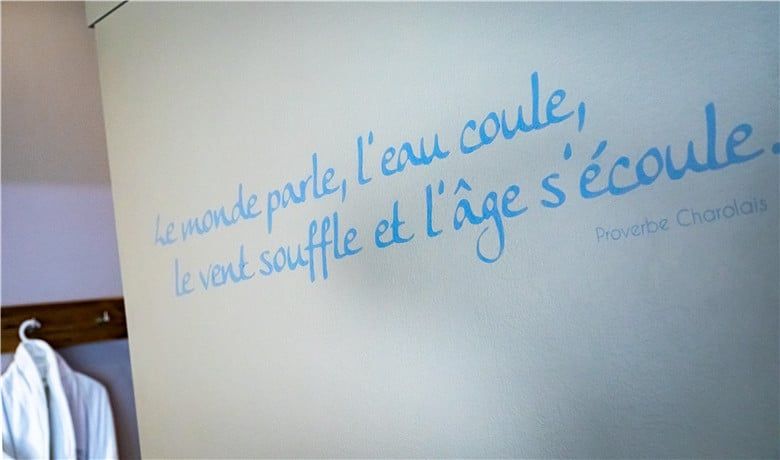 Le monde parle, l'eau coule,
le vent souffle et l'âge s'écoule.
Proverbe Charolais